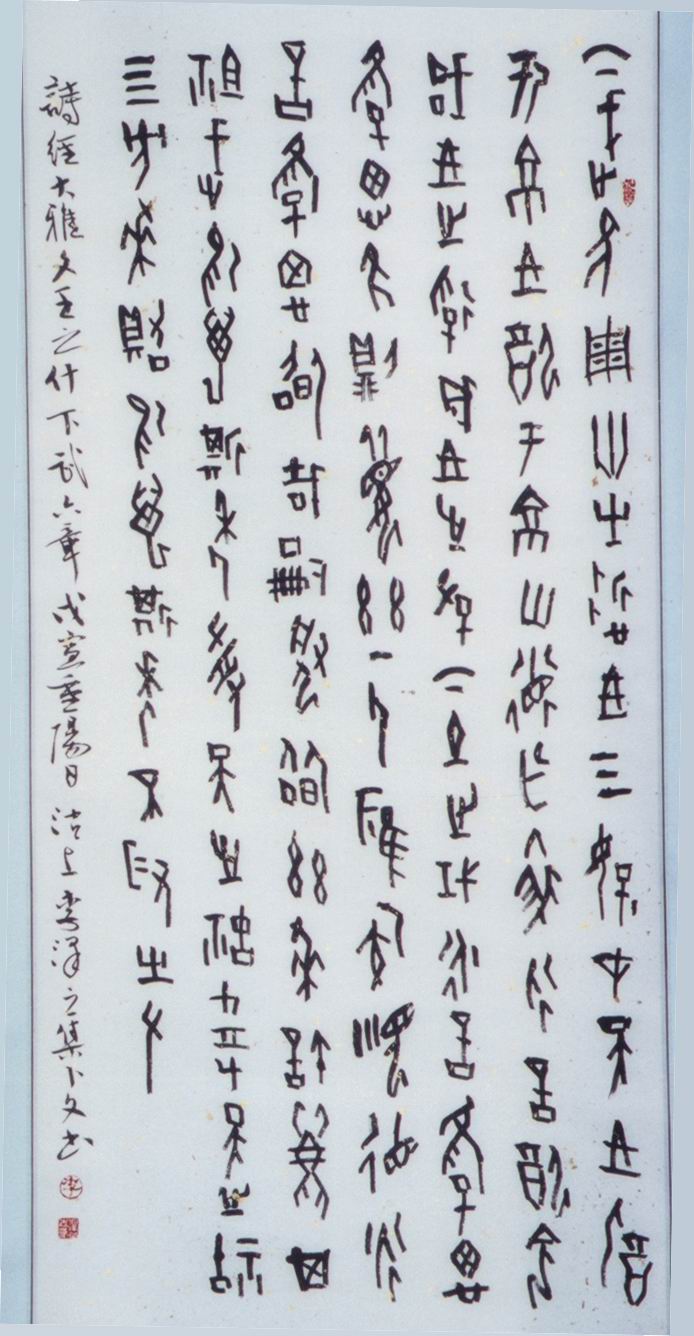 下武維周世有哲王三后在天王配
于京王配于京世德作求永言配命
成王之孚成王之孚下土之式永言孝思
孝思維則媚茲一人應侯順德永
言孝思昭哉嗣服昭茲來許繩其
祖武於萬斯年受天之祜受天之祜
四方來賀於萬斯年不遐有佐
詩經大雅文王之什下武六章戊寅重陽日沽上李澤之集卜文書